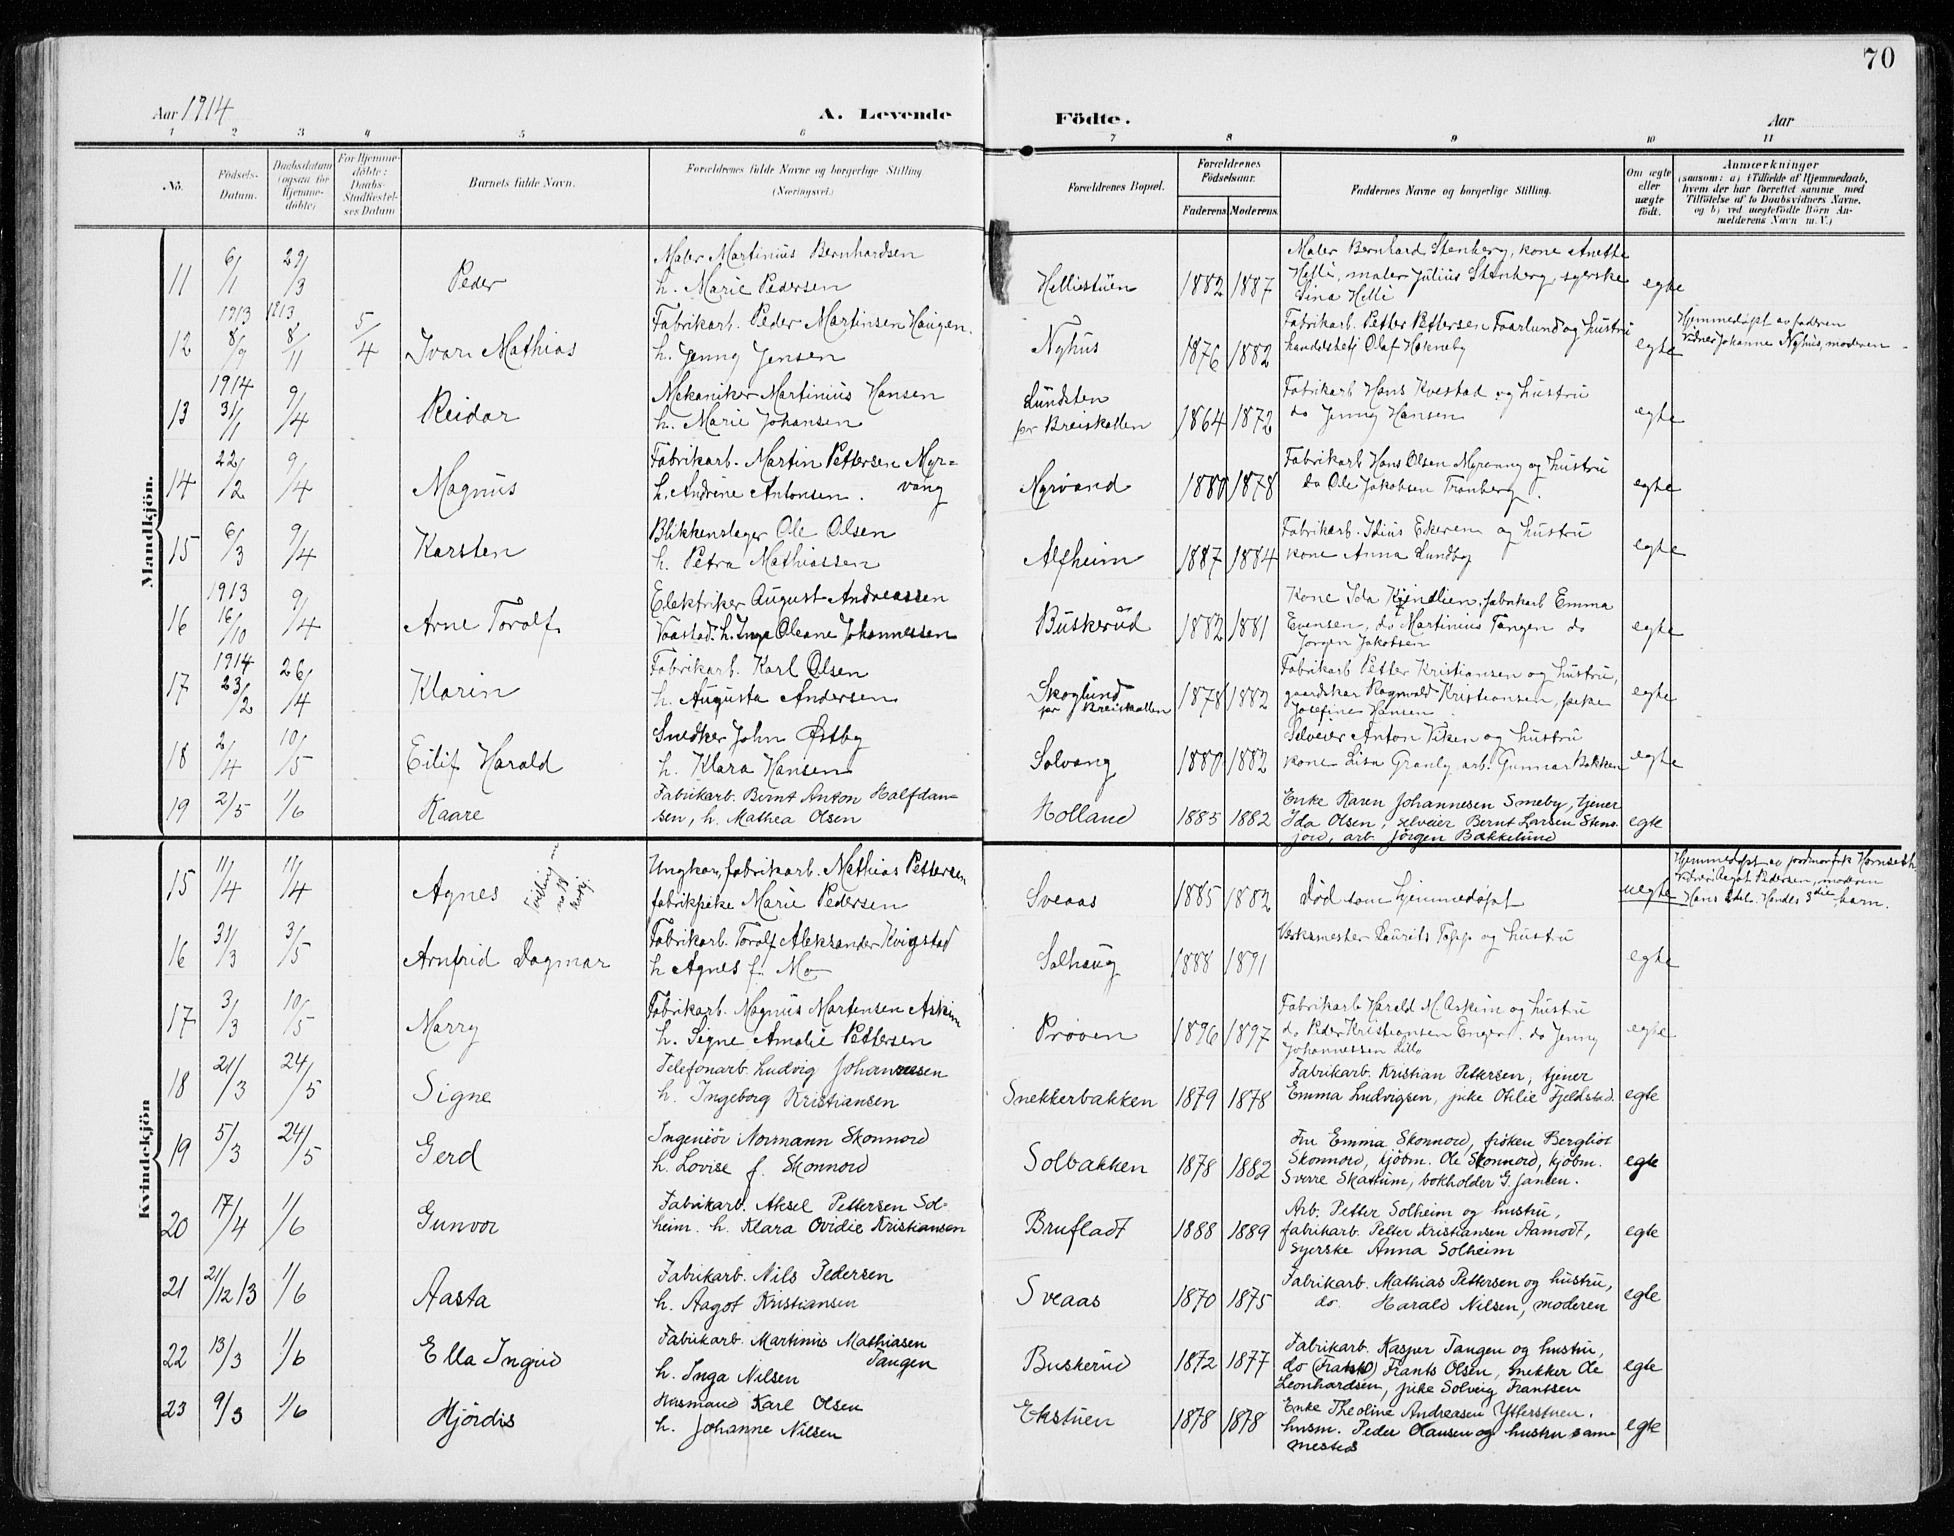 70
Aar 1914
A. Levende Födte.
Aar
1 2 3 4 5 6 7 8 9 10 11
No.
Födsels-Datum.
Daabsdatum (ogsaa for Hjemme-döbte)
For Hjemme-döbte: Daabs-Stadfæstel-ses Datum
Barnets fulde Navn.
Forældrenes fulde Navne og borgerlige Stilling (Næringsvei.)
Forældrenes Bopæl.
Forældrenes Födselsaar.
Faderens Moderens
Faddernes Navne og borgerlige Stilling.
Om ægte eller uægte födt.
Anmærkninger
(saasom: a) i Tilfælde af Hjemmedaab,
hvem der har forrettet samme med
Tilföielse af to Daabsvidners Navne,
og b) ved uægtefödte Börn An-
melderens Navn m. V.)
Mandkjön.
11 6/1 29/3 Peder
Maler Martinius Bernhardsen
h. Marie Pedersen
Hellistuen 1882 1887
Maler Bernhard Stenberg, kone Anette
Helli, maler Julius Stenberg, syerske
Lina Helli
egte
12 1913 8/9 1913 8/11 5/4 Ivar Mathias
Fabrikarb. Peder Martinsen Haugen.
h. Jenny Jensen
Nyhus 1876 1882
Fabrikarb. Petter Pettersen Faarlund og hustru
handelsbetj Olaf Hokneby
egte
Hjemmedøpt av faderen
Vidner Johanne Nyhus, moderen
13 1914 31/1 9/4 Reidar
Mekaniker Martinius Hansen
h. Marie Johansen
Lundsten
pr Breiskallen 1864 1872
Fabrikarb Hans Kvestad og hustru
do Jenny Hansen
egte
14 22/2 9/4 Magnus
Fabrikarb. Martin Pettersen Myr=
h. Andrine Antonsen. vang
Myrvand 1880 1878
Fabrikarb Hans Olsen Myrvang og hustru
do Ole Jakobsen Tranberg.
egte
15 6/3 9/4 Karsten
Blikkenslager Ole Olsen
h. Petra Mathiassen
Alfheim 1887 1884
Fabrikarb. Idius Ekeren og hustru
kone Anna Lundby
egte
16 1913 16/10 9/4 Arne Torolf
Elektriker August Andreassen
Vaastad. h. Inga Oleane Johannessen
Buskerud 1882 1881
Kone Ida Kjendlien, fabrikarb Emma
Evensen, do Martinius Tangen do
Jørgen Jakobsen
egte
17 1914 23/2 26/4 Klarin
Fabrikarb. Karl Olsen
h. Augusta Andersen
Skoglund
pr Breiskallen 1878 1882
Fabrikarb Petter Kristiansen og hustru,
gaardskar Ragnvald Kristiansen, pike
Josefine Hansen
egte
18 2/4 10/5 Eilif Harald
Snedker John Østby
h. Klara Hansen
Solvang 1880 1882
Selveier Anton Viken og hustru
kone Lisa Granly, arb. Gunnar Bakken
egte
19 2/5 1/6 Kaare
Fabrikarb. Bernt Anton Halfdan-
sen, h. Mathea Olsen
Holland 1885 1882
Enke Karen Johannesen Smeby, tjener
Ida Olsen, selveier Bernt Larsen Stens-
jord, arb. Jørgen Bakkelund
egte
Kvindekjön
15 11/4 11/4 Agnes
Ungkar, fabrikarb. Mathias Pettersen
fabrikpike Marie Pedersen
Sveaas 1885 1882
Død som hjemmedøpt
uegte
Hjemmedøpt av jordmor frk Hornseth.
Vidner Aagot Pedersen, moderen
Hans 2det. Hendes 3die barn.
16 31/3 3/5 Arnfrid Dagmar
Fabrikarb. Torolf Aleksander Kvigstad
h Agnes f. Mo
Solhaug 1888 1891
Verksmester Laurits Topp og hustru
egte
17 3/3 10/5 Marry
Fabrikarb. Magnus Martensen Askim
h. Signe Amalie Pettersen
Prøven 1896 1897
Fabrikarb Harald M. Askim og hustru
do Peder Kristiansen Enger. do Jenny
Johannessen Lillo
egte
18 21/3 24/5 Signe
Telefonarb. Ludvig Johannesen
h. Ingeborg Kristiansen
Snekkerbakken 1879 1878
Fabrikarb. Kristian Pettersen, tjener
Emma Ludvigsen, pike Otilie Fjeldstad.
egte
19 5/3 24/5 Gerd
Ingeniør Normann Skonnord
h. Lovise f. Skonnord
Solbakken 1878 1882
Fru Emma Skonnord, frøken Bergliot
Skonnord, kjøbm. Ole Skonnord, kjøbm.
Sverre Skattum, bokholder G. Jansen.
egte
20 17/4 1/6 Gunvor
Fabrikarb. Aksel Pettersen Sol-
heim. h. Klara Ovidie Kristiansen
Brufladt 1888 1889
Arb. Petter Solheim og hustru,
fabrikarb. Petter Kristiansen Aamodt,
syerske Anna Solheim
egte
21 21/12 13 1/6 Aasta
Fabrikarb. Nils Pedersen
h. Aagot Kristiansen
Sveaas 1870 1875
Fabrikarb. Mathias Pettersen og hustru,
do. Harald Nilsen, moderen
egte
22 13/3 1/6 Ella Ingrid
Fabrikarb. Martinius Mathiasen
Tangen
h. Inga Nilsen
Buskerud 1872 1877
Fabrikarb. Kasper Tangen og hustru,
do Frants Olsen, snekker Ole
Leonhardsen, pike Solveig Frantsen
egte
23 9/3 1/6 Hjördis
Husmand Karl Olsen
h. Johanne Nilsen
Ekstuen 1878 1878
Enke Theoline Andreasen Ytterstuen.
husm. Peder Olausen og hustru samme-
mesteds
egte